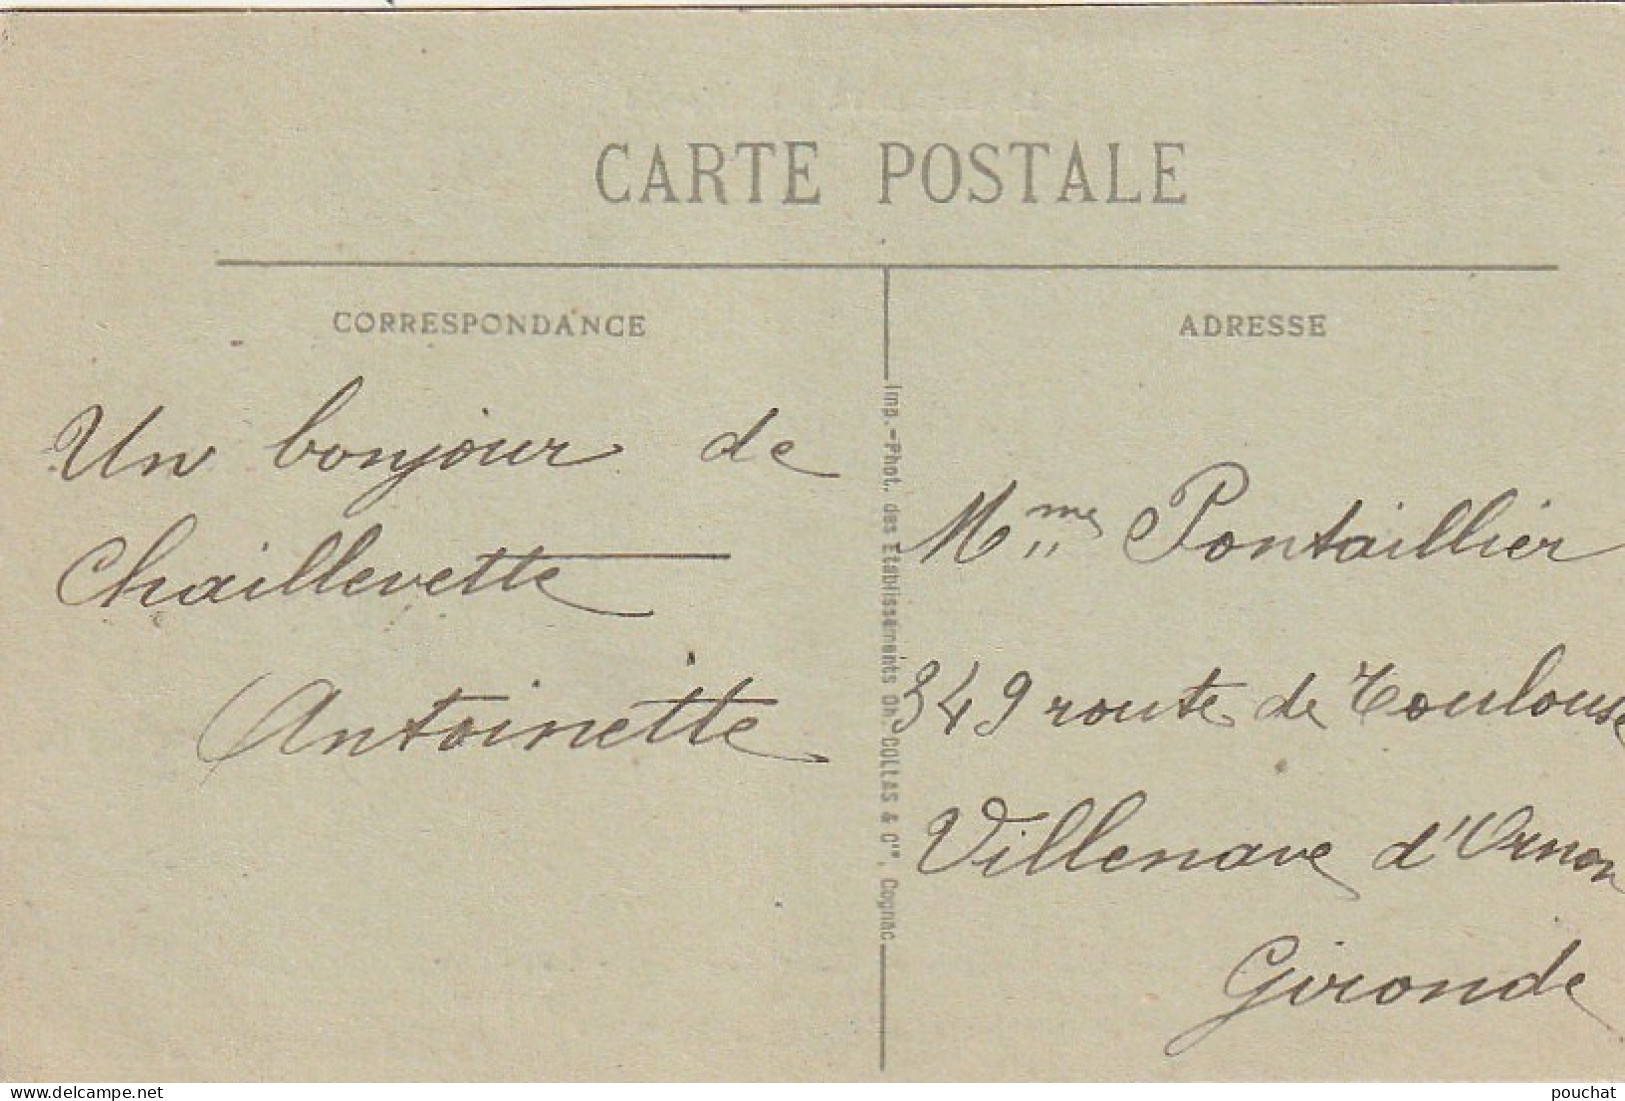 CARTE POSTALE
CORRESPONDANCE
Un bonjour de
Chaillevette
Antoinette
Imp.-Phot. des Etablissements Ch. COLLAS & Cie, Cognac
ADRESSE
Mme Pontaillier
349 route de Toulouse
Villenave d'Ornon
Gironde
www.delcampe.net
pouchat